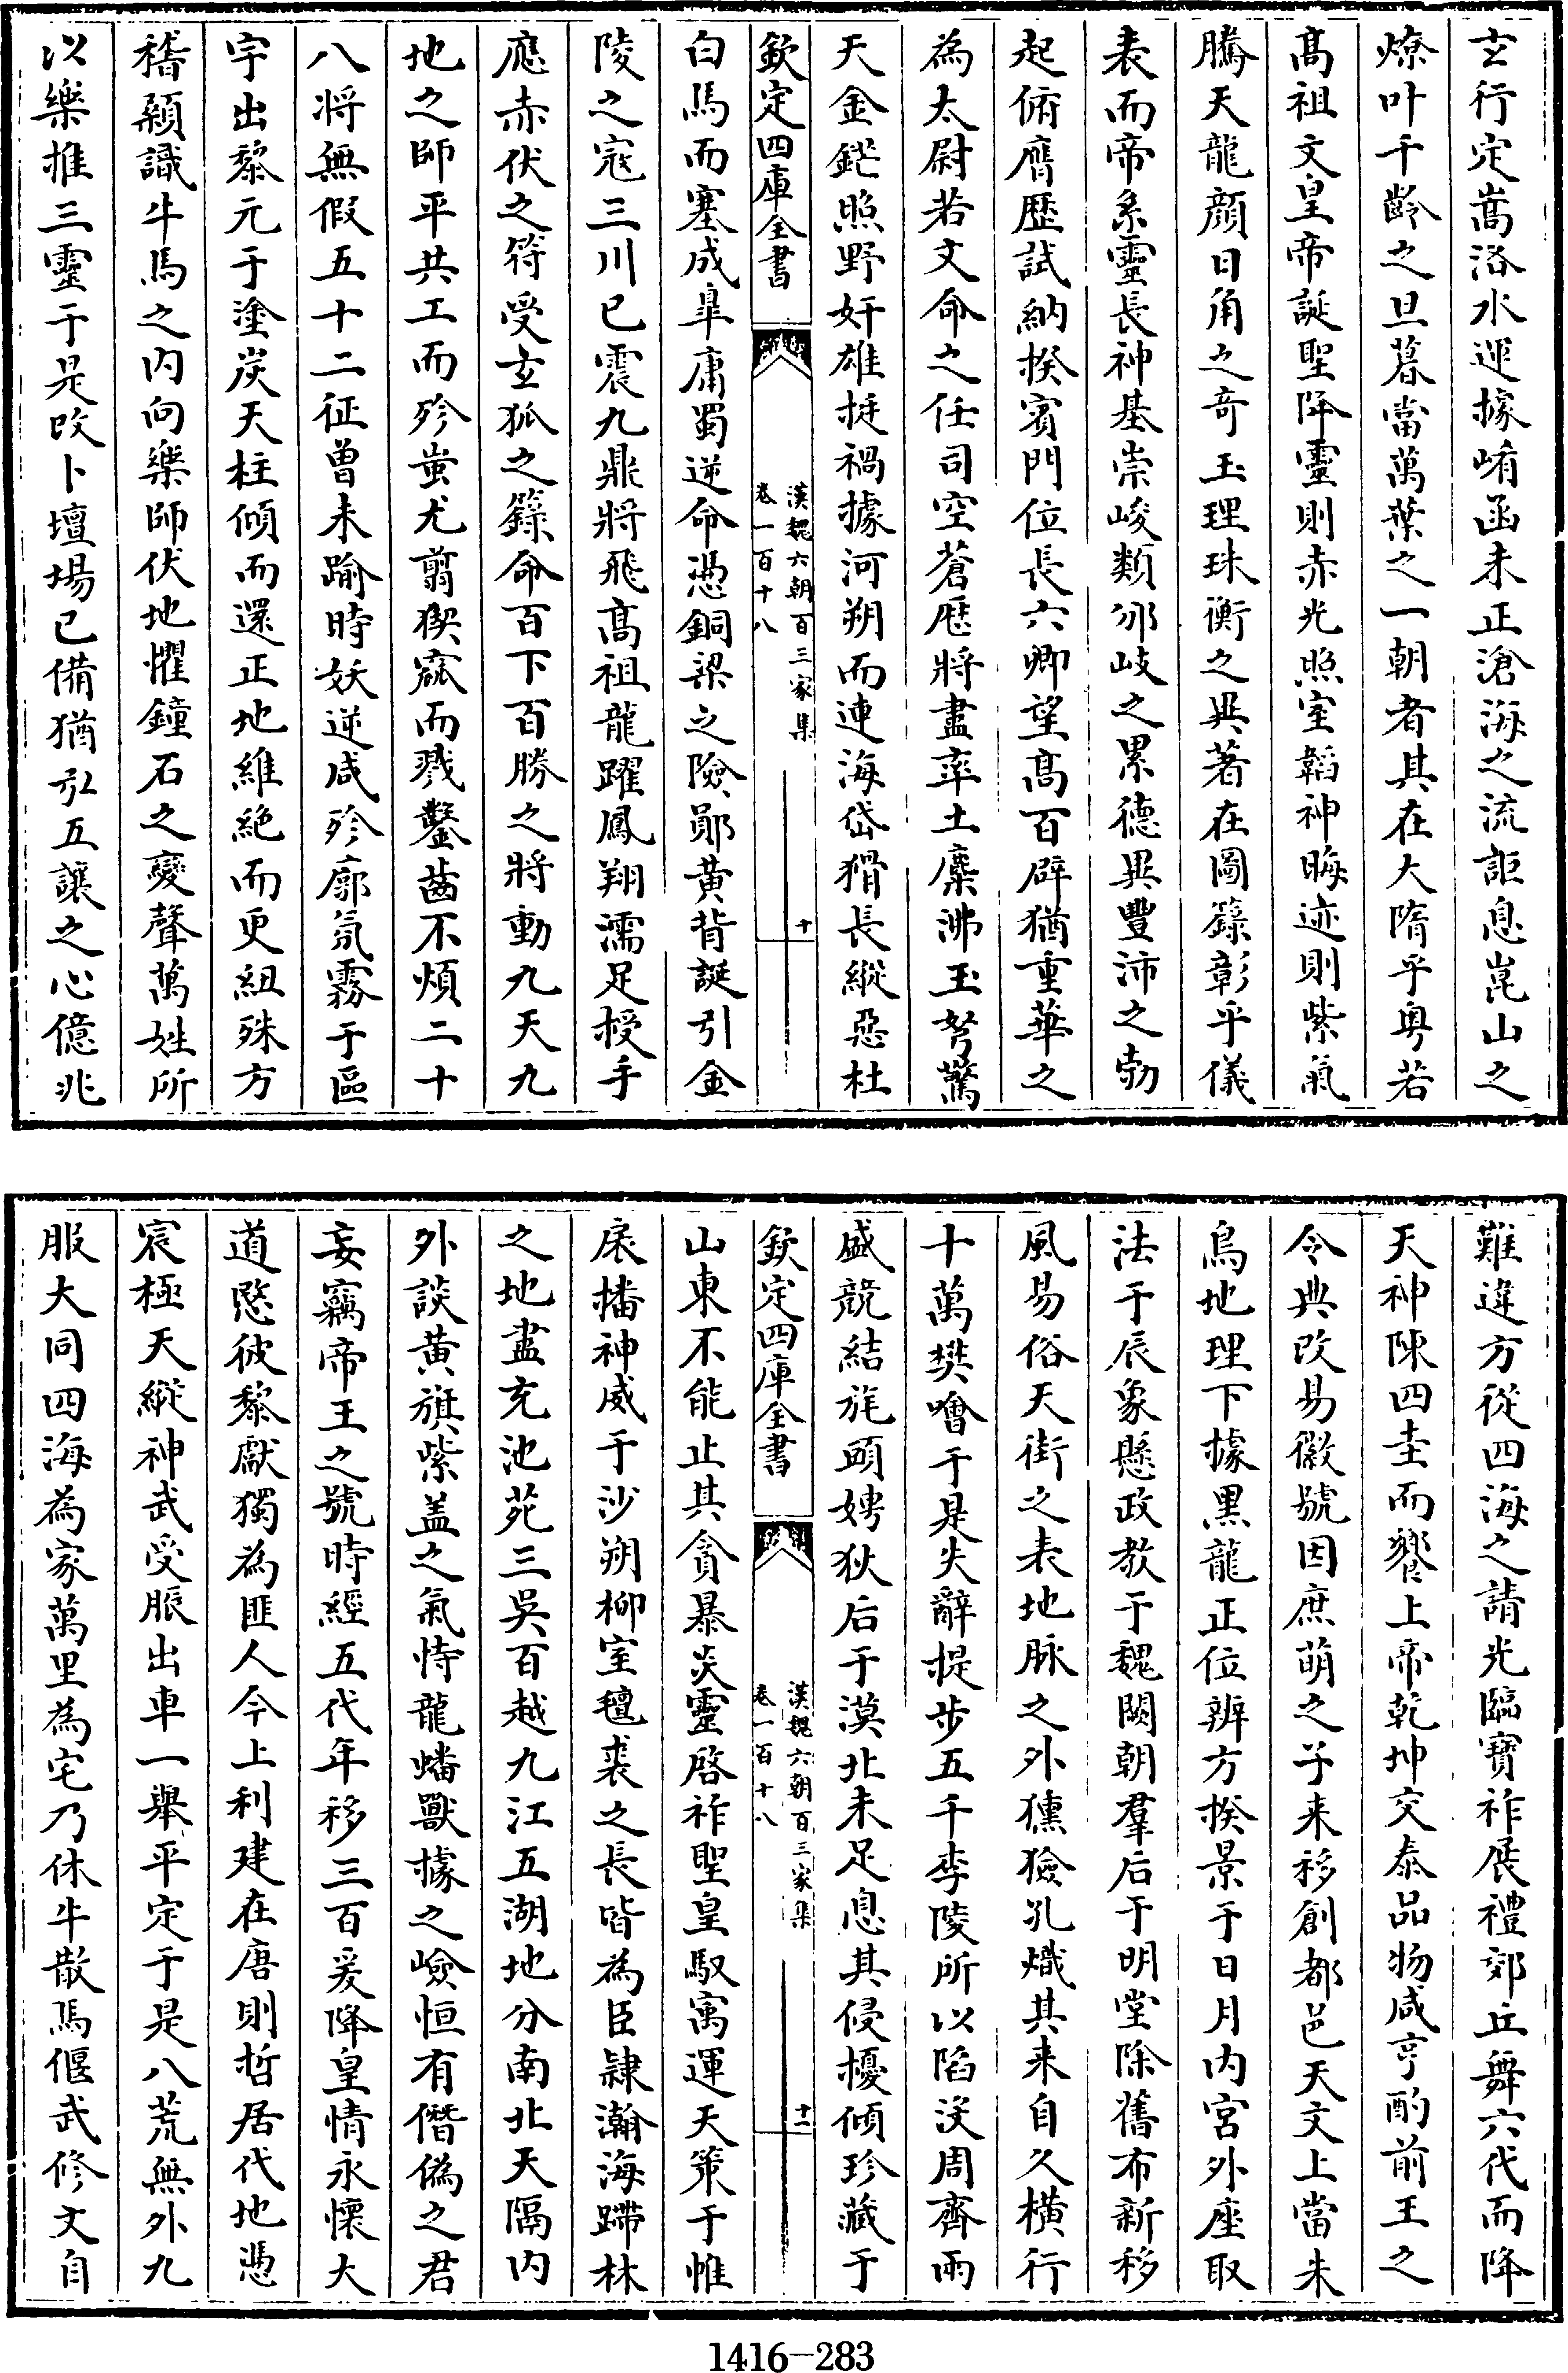 玄行定嵩洛水運據崤函未正滄海之流詎息崑山之
燎叶千齡之旦暮當萬葉之一朝者其在大隋乎粤若
髙祖文皇帝誕聖降靈則赤光照室韜神晦迹則紫氣
騰天龍顔日角之竒玉理珠衡之異著在圖籙彰乎儀
表而帝系靈長神基崇峻類邠岐之累德異豐沛之勃
起俯膺歴試納揆賓門位長六卿望髙百辟猶重華之
為太尉若文命之任司空蒼歴將盡率土麋沸玉弩驚
天金鋩照野奸雄挺禍據河朔而連海岱猾長縱惡杜
欽定四庫全書
漢魏六朝百三家集
卷一百十八
十
白馬而塞成臯庸蜀逆命憑銅梁之險鄖黄背誕引金
陵之寇三川已震九鼎將飛髙祖龍躍鳳翔濡足授手
應赤伏之符受玄狐之籙命百下百勝之將動九天九
地之師平共工而殄蚩尤翦猰㺄而戮鑿齒不煩二十
八将無假五十二征曽未踰時妖逆咸殄廓氛霧于區
宇出黎元于塗炭天柱傾而還正地維絶而更紐殊方
稽顙識牛馬之内向樂師伏地懼鐘石之變聲萬姓所
以樂推三靈于是改卜壇場已備猶弘五讓之心億兆
難違方從四海之請光臨寶祚展禮郊丘舞六代而降
天神陳四圭而饗上帝乾坤交泰品物咸亨酌前王之
令典改易徽號因庶萌之子来移創都邑天文上當朱
鳥地理下據黒龍正位辨方揆景于日月内宮外座取
法于辰象懸政教于魏闕朝羣后于明堂除舊布新移
風易俗天街之表地脉之外獯獫孔熾其来自久横行
十萬樊噲于是失辭提步五千李陵所以陷没周齊兩
盛競結旄頭娉狄后于漠北未足息其侵擾傾珍藏于
欽定四庫全書
漢魏六朝百三家集
卷一百十八
十一
山東不能止其貪暴炎靈啓祚聖皇馭寓運天策于帷
扆播神威于沙朔柳室氊裘之長皆為臣隷瀚海蹛林
之地盡充池苑三吳百越九江五湖地分南北天隔内
外談黄旗紫盖之氣恃龍蟠獸據之嶮恒有僭偽之君
妄竊帝王之號時經五代年移三百爰降皇情永懷大
道愍彼黎獻獨為匪人今上利建在唐則哲居代地憑
宸極天縱神武受脤出車一舉平定于是八荒無外九
服大同四海為家萬里為宅乃休牛散馬偃武修文自
1416-283